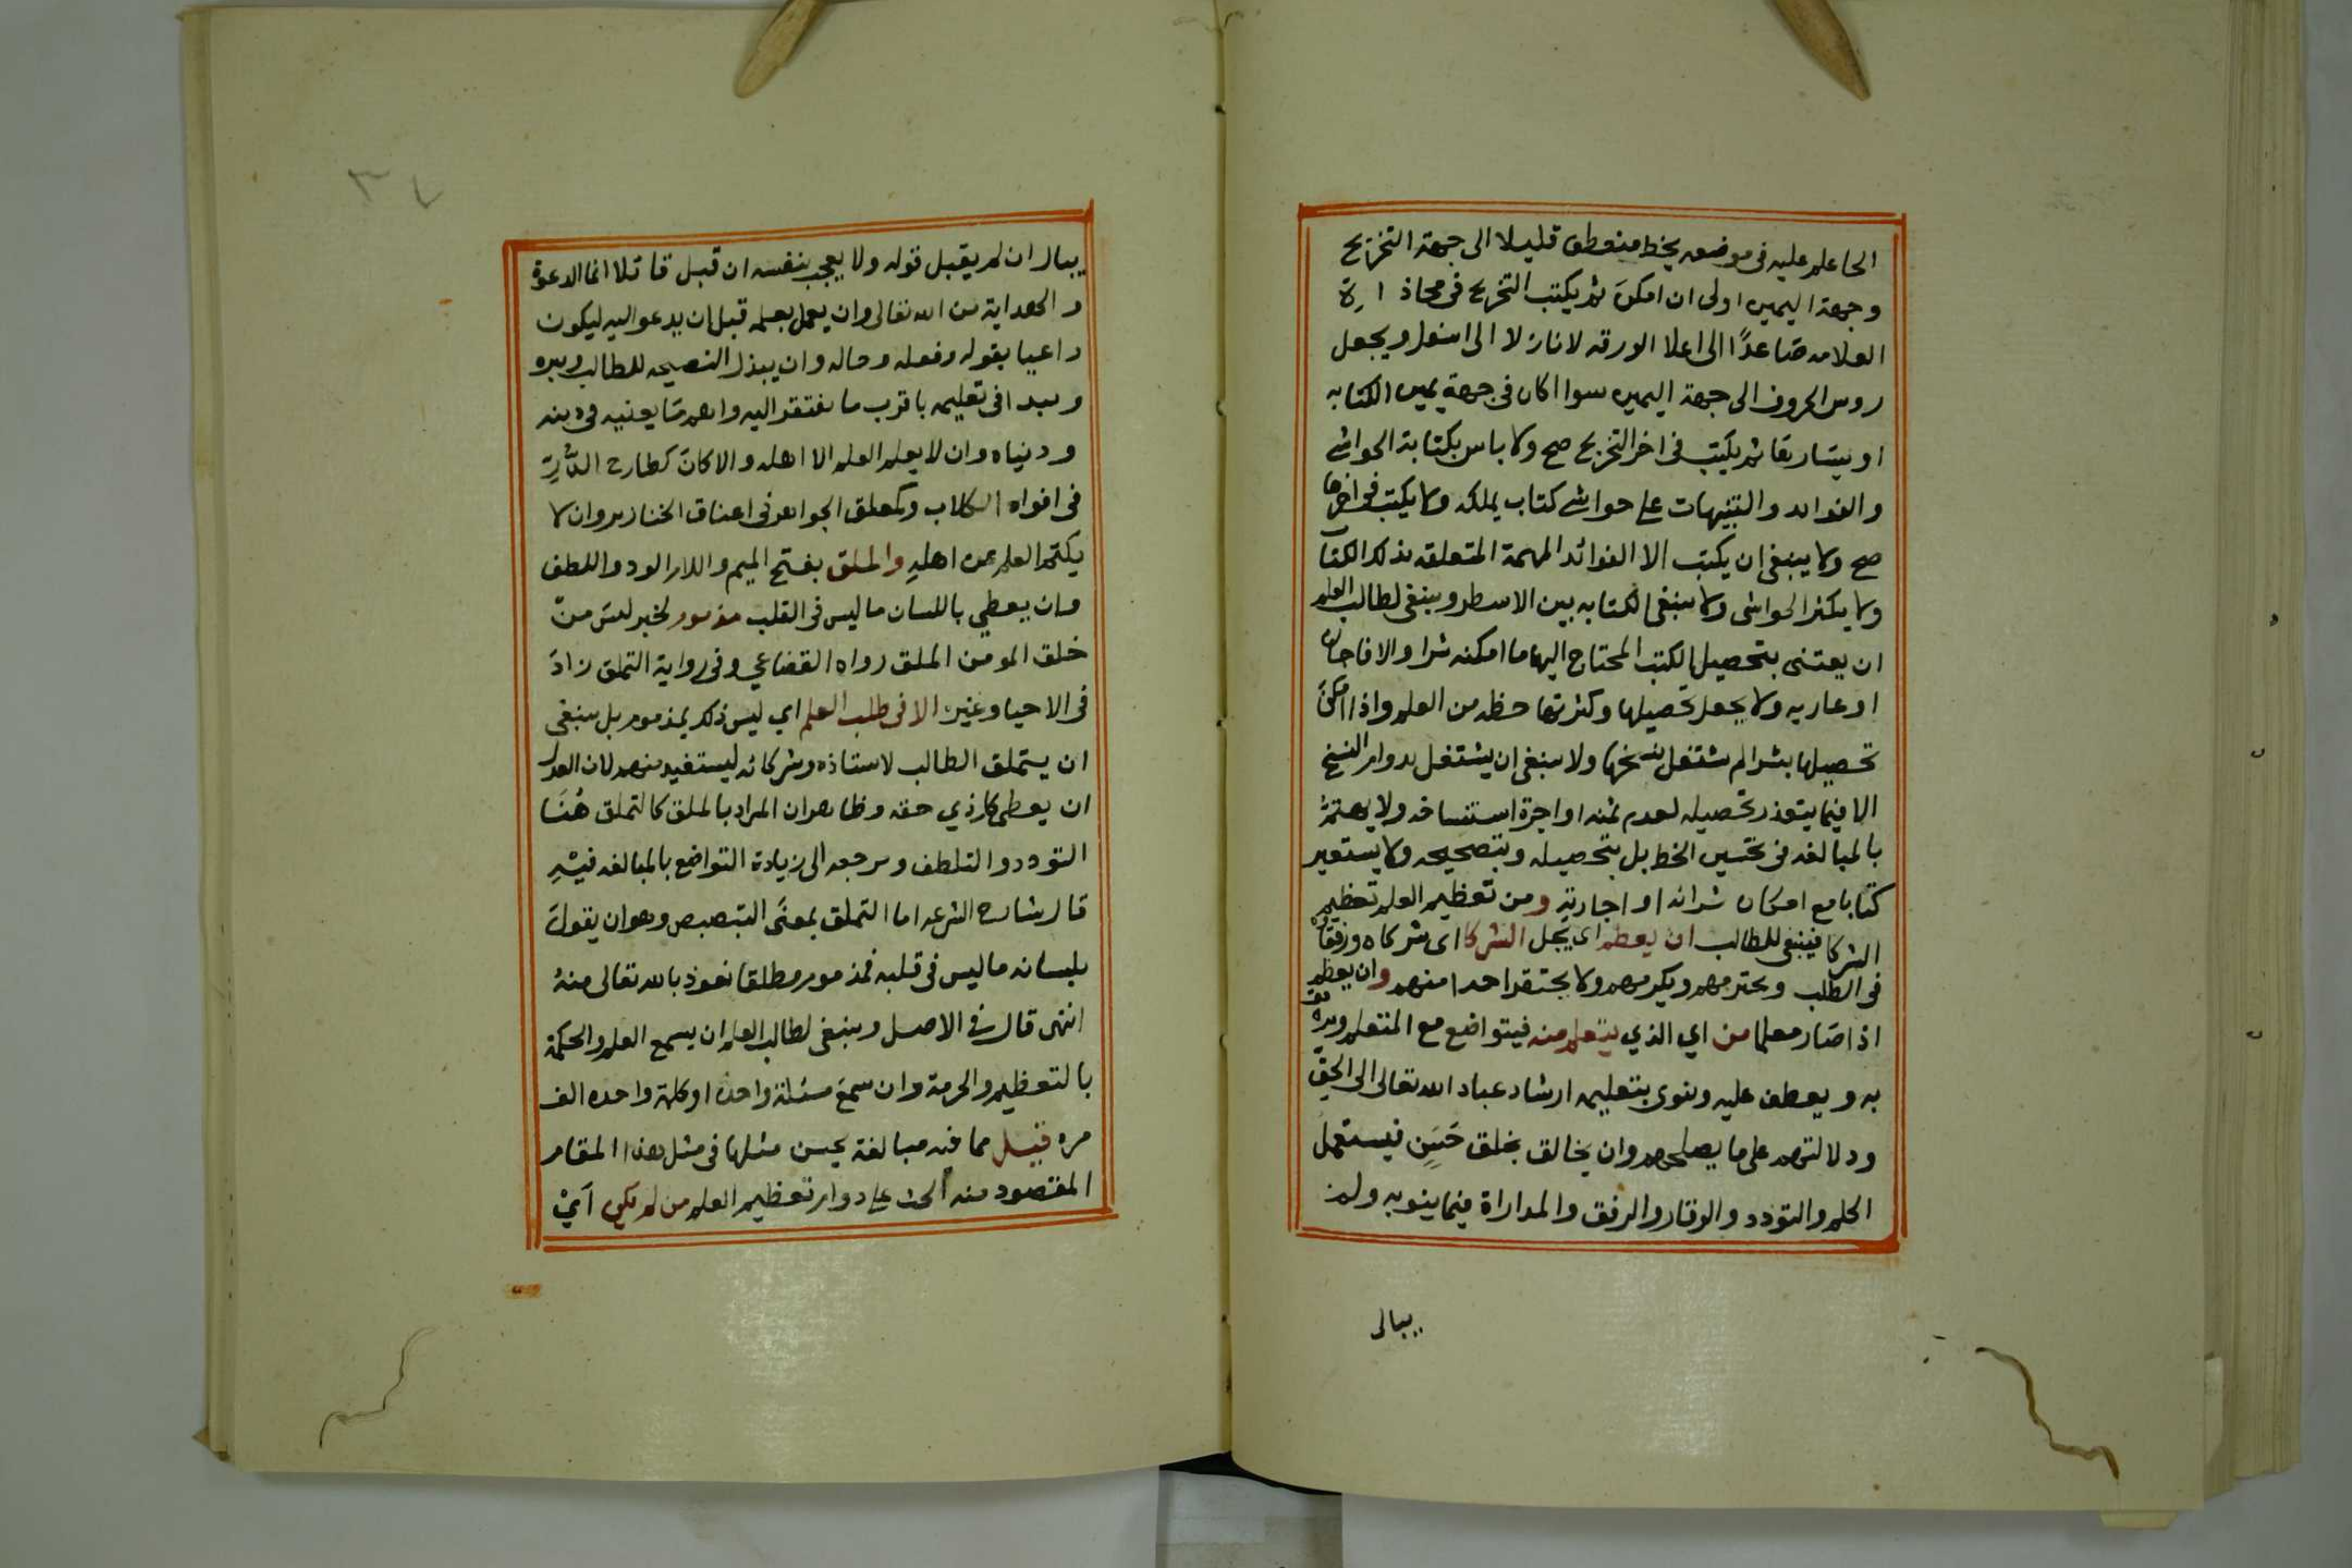 الحا علم عليه فى موضعه بخط منعطف قليلا الى جهة التخريج
وجهة اليمين اولى ان امكن ثم يكتب التخريج فى محاذاة
العلامه صاعدًا الى اعلا الورقه لا نازلا الى اسفل ويجعل
روس الحروف الى جهة اليمين سوا اكان فى جهة يمين الكتابه
او يسارها ثم يكتب فى اخر التخريج صح ولا باس بكتابة الحواشى
والفوايد والتنبيهات على حواشى كتاب يملكه ولا يكتب فى اخرها
صح ولا ينبغى ان يكتب الا الفوائد المهمة المتعلقه بذلك الكتاب
ولا يكثر الحواشى ولا ينبغى الكتابه بين الاسطر وينبغى لطالب العلم
ان يعتنى بتحصيل الكتب المحتاج اليها ما امكنه شرا والا فاجارة
او عاريه ولا يجعل تحصيلها وكثرتها حظه من العلم واذا امكن
تحصيلها بشرا لم يشتغل بنسخها ولا ينبغى ان يشتغل بدوام النسخ
الا فيما يتعذر تحصيله لعدم ثمنه او اجرة استنساخه ولا يهتم
بالمبالغه فى تحسين الخط بل بتحصيله وبتصحيحه ولا يستعير
كتابا مع امكان شرائه او اجارته ومن تعظيم العلم تعظيم
الشركا فينبغى للطالب ان يعظم اى يجل الشركا اى شركاه ورفقاه
فى الطلب ويحترمهم ويكرمهم ولا يحتقر احدا منهم وان يعظم
اذا صار معلما من اي الذي يتعلم منه فيتواضع مع المتعلم ويرفق
به ويعطف عليه وينوى بتعليمه ارشاد عباد الله تعالى الى الحق
ودلالتهم على ما يصلحهم وان يخالق بخلق حسن فيستعمل
الحلم والتودد والوقار والرفق والمداراة فيما ينوبه ولم
يبال
٣٤
يبال ان لم يقبل قوله ولا يعجب بنفسه ان قبل قائلا انما الدعوة
والهداية من الله تعالى وان يعمل بعلمه قبل ان يدعو اليه ليكون
داعيا بقوله وفعله وحاله وان يبذل النصيحه للطالب وبره
ويبدا فى تعليمه باقرب ما يفتقر اليه واهم ما يعنيه فى دينه
ودنياه وان لا يعلم العلم الا اهله والا كان كطارح الدر
فى افواه الكلاب وكمعلق الجواهر فى اعناق الخنازير وان لا
يكتم العلم عن اهله والملق بفتح الميم واللام الود واللطف
وان يعطي باللسان ما ليس فى القلب مذموم لخبر ليس من
خلق المومن الملق رواه القضاعي وفى رواية التملق زاد
فى الاحيا وغيره الا فى طلب العلم اي ليس ذلك بمذموم بل ينبغى
ان يتملق الطالب لاستاذه وشركائه ليستفيد منهم لان العدل
ان يعطى كل ذي حقه وظاهر ان المراد بالملق كالتملق هنا
التودد والتلطف ومرجعه الى زيادة التواضع بالمبالغه فيه
قال شارح الشرعه اما التملق بمعنى التبصبص وهو ان يقول
بلسانه ما ليس فى قلبه فمذموم مطلقا نعوذ بالله تعالى منه
انتهى قال فى الاصل وينبغى لطالب العلم ان يسمع العلم والحكمة
بالتعظيم والحرمة وان سمع مسئلة واحدة او كلمة واحده الف
مره قيل مما فيه مبالغة يحسن مثلها فى مثل هذا المقام
المقصود منه الحث على دوام تعظيم العلم من لم يكن اي